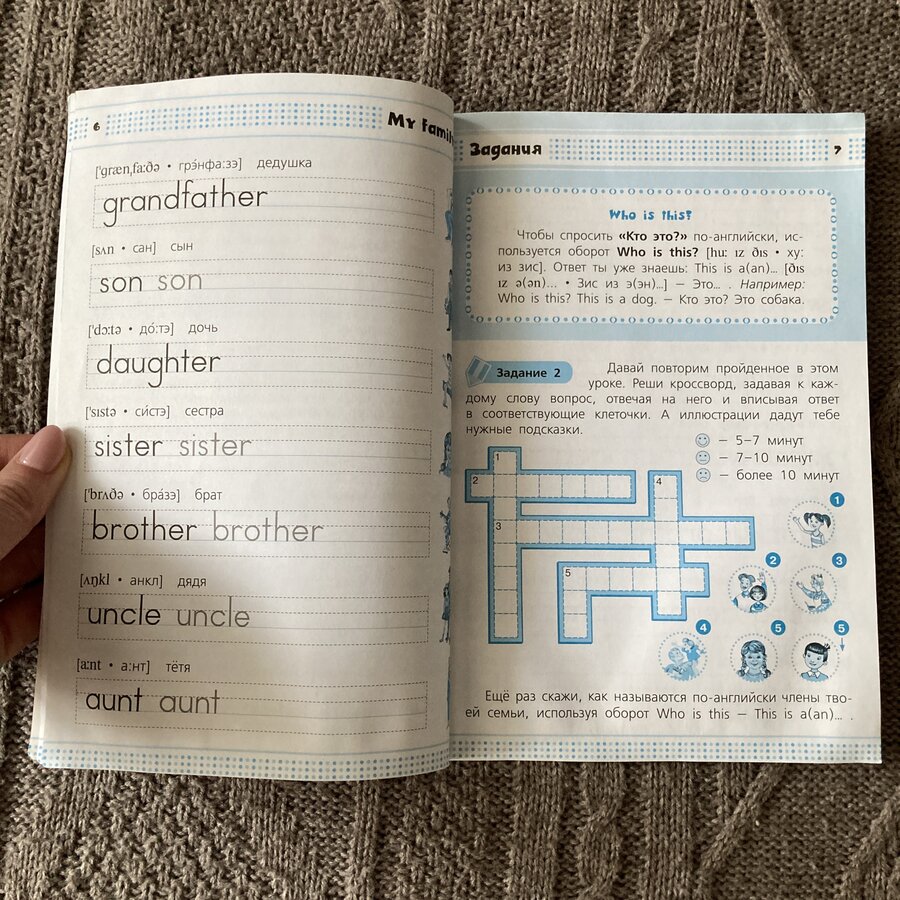 6
['græn,fa:ðə • грэ́нфа:зэ] дедушка
grandfather
[sʌn • сан] сын
son son
['dɔ:tə • до́:тэ] дочь
daughter
['sɪstə • си́стэ] сестра
sister sister
['brʌðə • бра́зэ] брат
brother brother
[ʌŋkl • анкл] дядя
uncle uncle
[a:nt • а:нт] тётя
aunt aunt
Задания 7
Who is this?
Чтобы спросить «Кто это?» по-английски, ис-
пользуется оборот Who is this? [hu: ɪz ðɪs • ху:
из зис]. Ответ ты уже знаешь: This is a(an)... [ðɪs
ɪz ə(ən)... • Зис из э(эн)...] – Это... . Например:
Who is this? This is a dog. – Кто это? Это собака.
Задание 2 Давай повторим пройденное в этом
уроке. Реши кроссворд, задавая к каж-
дому слову вопрос, отвечая на него и вписывая ответ
в соответствующие клеточки. А иллюстрации дадут тебе
нужные подсказки.
– 5–7 минут
– 7–10 минут
– более 10 минут
1
2 4
3
5
1
2 3
4 5 5
Ещё раз скажи, как называются по-английски члены тво-
ей семьи, используя оборот Who is this – This is a(an)... .